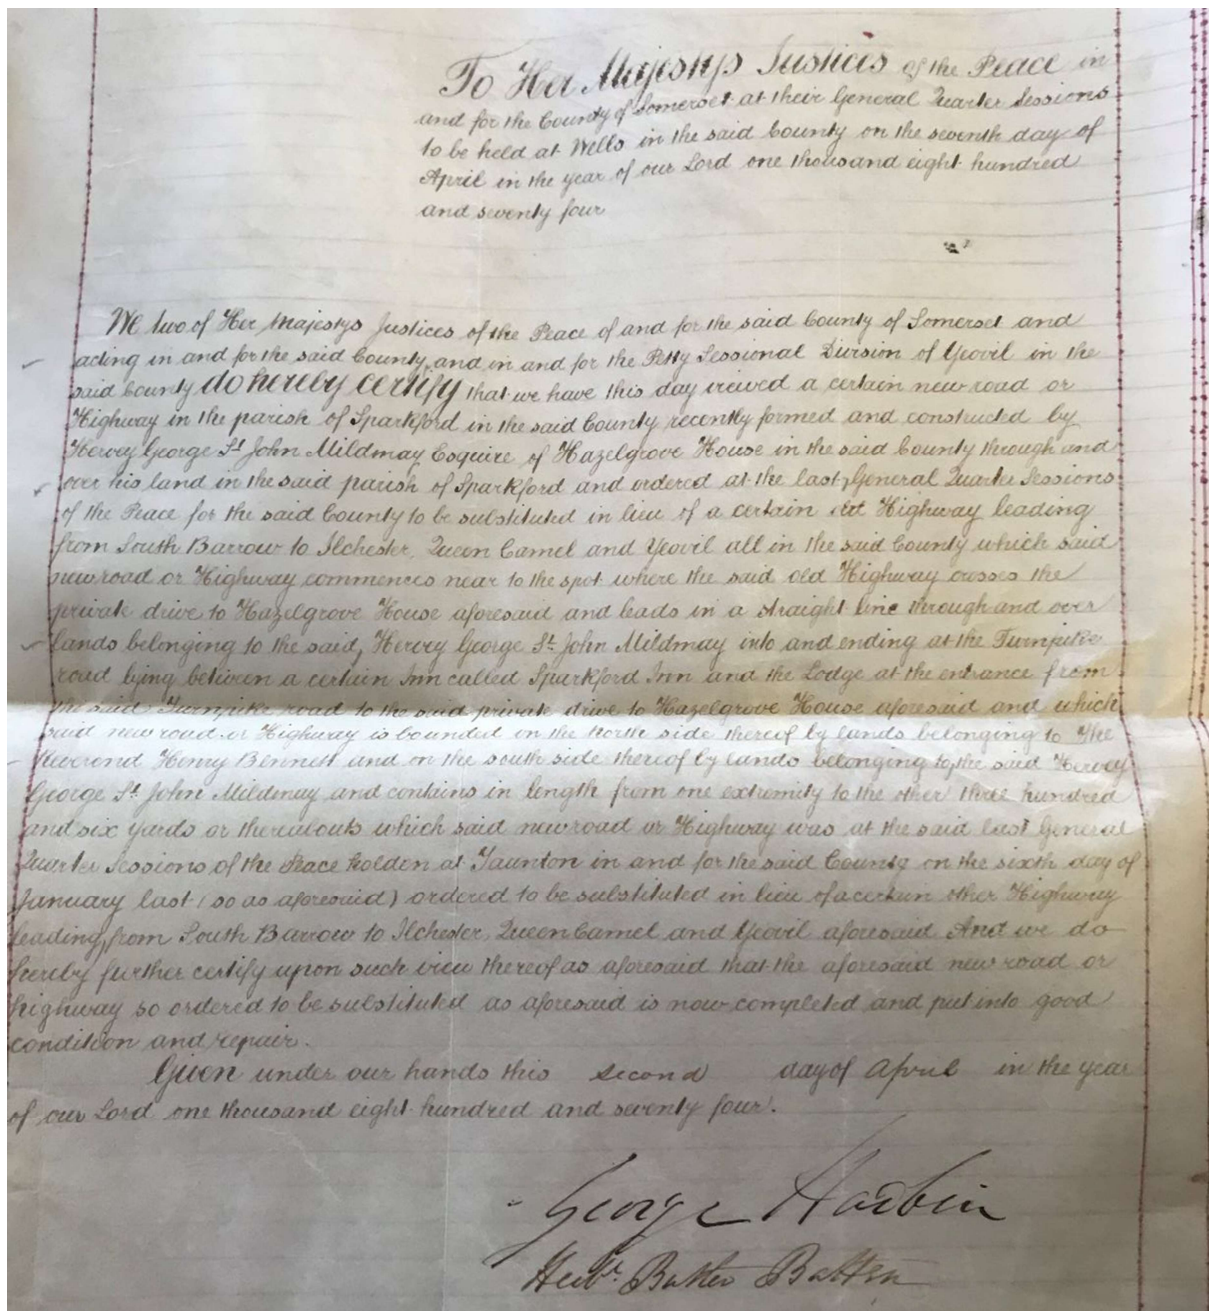 To Her Majestys Justices of the Peace in
and for the County of Somerset at their General Quarter Sessions
to be held at Wells in the said County on the seventh day of
April in the year of our Lord one thousand eight hundred
and seventy four
We two of Her Majestys Justices of the Peace of and for the said County of Somerset and
acting in and for the said County and in and for the Petty Sessional Division of Yeovil in the
said County do hereby certify that we have this day viewed a certain new road or
Highway in the parish of Sparkford in the said County recently formed and constructed by
Hervey George St. John Mildmay Esquire of Hazelgrove House in the said County through and
over his land in the said parish of Sparkford and ordered at the last General Quarter Sessions
of the Peace for the said County to be substituted in lieu of a certain Highway leading
from South Barrow to Ilchester, Queen Camel and Yeovil all in the said County which said
new road or Highway commences near to the spot where the said old Highway crosses the
private drive to Hazelgrove House aforesaid and leads in a straight line through and over
lands belonging to the said Hervey George St. John Mildmay into and ending at the Turnpike
road lying between a certain Inn called Sparkford Inn and the Lodge at the entrance from
the said Turnpike road to the said private drive to Hazelgrove House aforesaid and which
said new road or Highway is bounded on the North side thereof by lands belonging to The
Reverend Henry Bennett and on the south side thereof by lands belonging to the said Hervey
George St. John Mildmay and contains in length from one extremity to the other three hundred
and six yards or thereabouts which said new road or Highway was at the said last General
Quarter Sessions of the Peace holden at Taunton in and for the said County on the sixth day of
January last (so as aforesaid) ordered to be substituted in lieu of a certain other Highway
leading from South Barrow to Ilchester, Queen Camel and Yeovil aforesaid And we do
hereby further certify upon such view thereof as aforesaid that the aforesaid new road or
highway so ordered to be substituted as aforesaid is now completed and put into good
condition and repair.
Given under our hands this second day of April in the year
of our Lord one thousand eight hundred and seventy four.
George Harbin
Batten